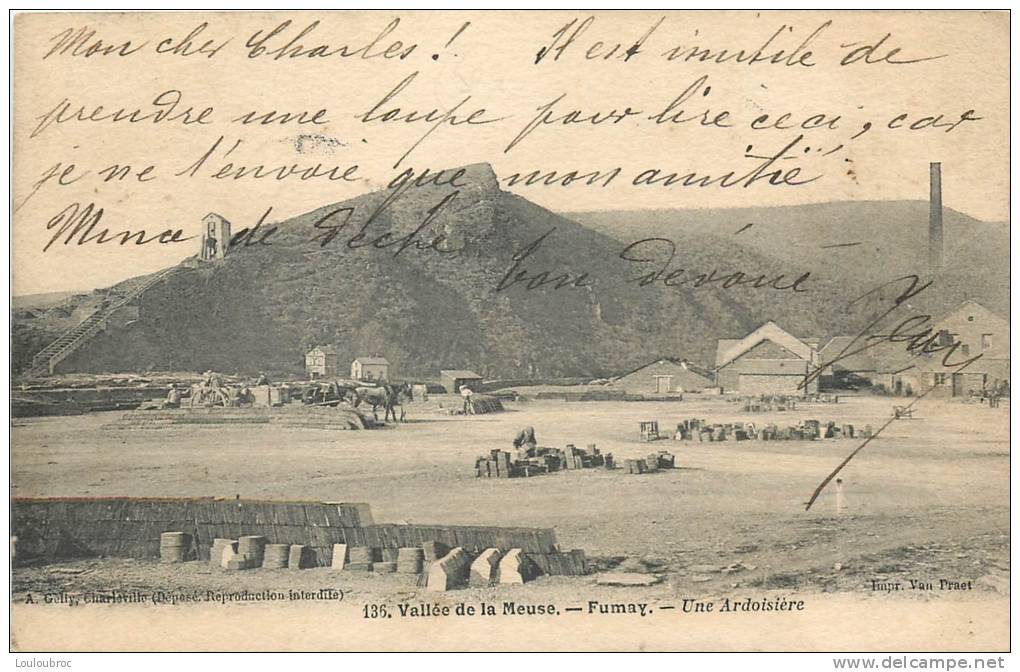 Mon cher Charles! Il est inutile de
prendre une loupe pour lire ceci, car
je ne t'envoie que mon amitië
Mina de Dèche bon dévoué
Jean
A. Gelly, Charleville (Déposé. Reproduction interdite)
Impr. Van Praet
136. Vallée de la Meuse. — Fumay. — Une Ardoisière
Louloubroc
www.delcampe.net